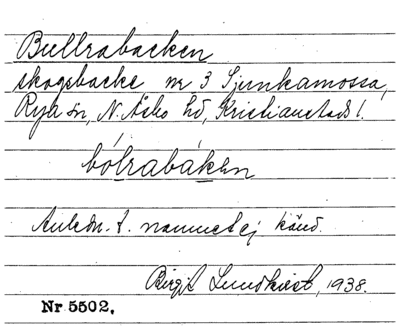 Bullrabacken
skogsbacke nr 3 Sjunkamossa,
Rya sn, N. Åsbo hd, Kristianstads l.
bólrabáken
Anledn. t. namnet ej känd.
Birgit Lundkvist, 1938.
Nr 5502.